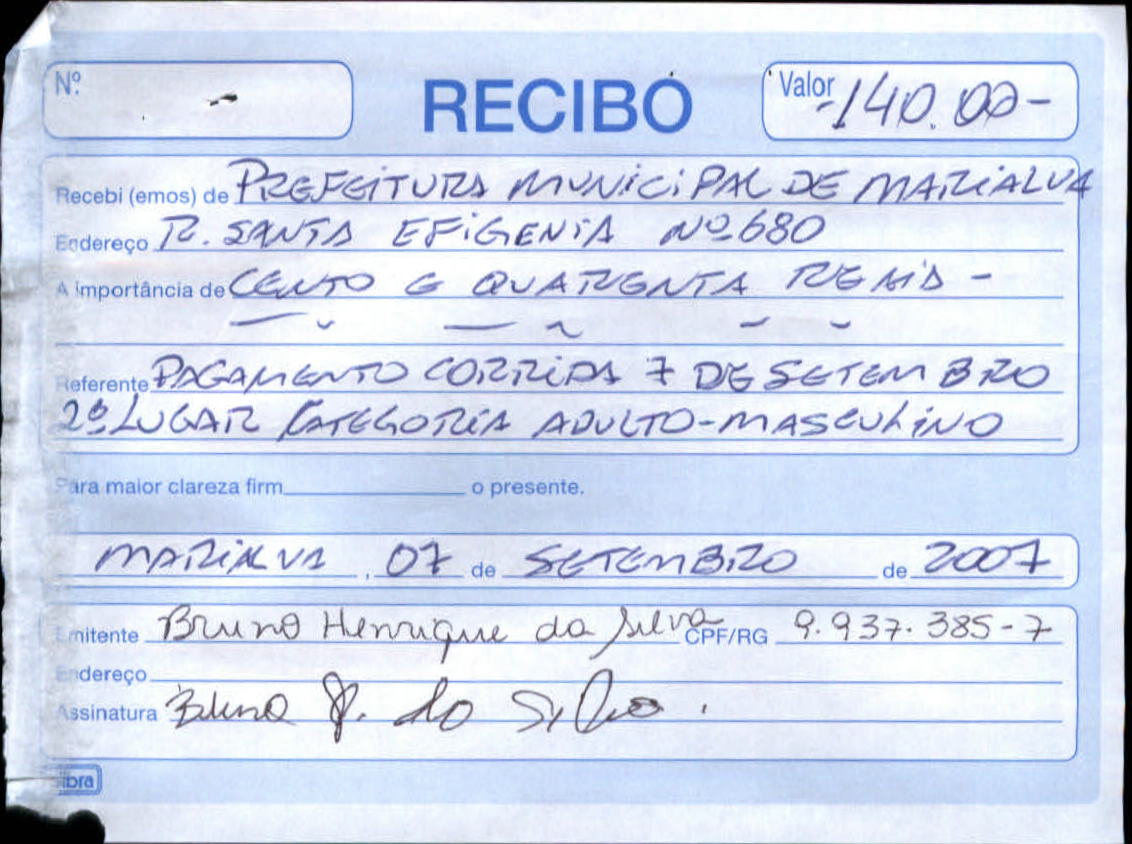 Nº RECIBO Valor -140.00-
Recebi (emos) de PREFEITURA MUNICIPAL DE MARIALVA
Endereço R. SANTA EFIGENIA Nº 680
A importância de CENTO E QUARENTA REAIS -
Referente PAGAMENTO CORRIDA 7 DE SETEMBRO
2º LUGAR CATEGORIA ADULTO-MASCULINO
Para maior clareza firm____________ o presente.
MARIALVA, 07 de SETEMBRO de 2007
Emitente Bruno Henrique da Silva CPF/RG 9.937.385-7
Endereço
Assinatura Bruno H. da Silva.